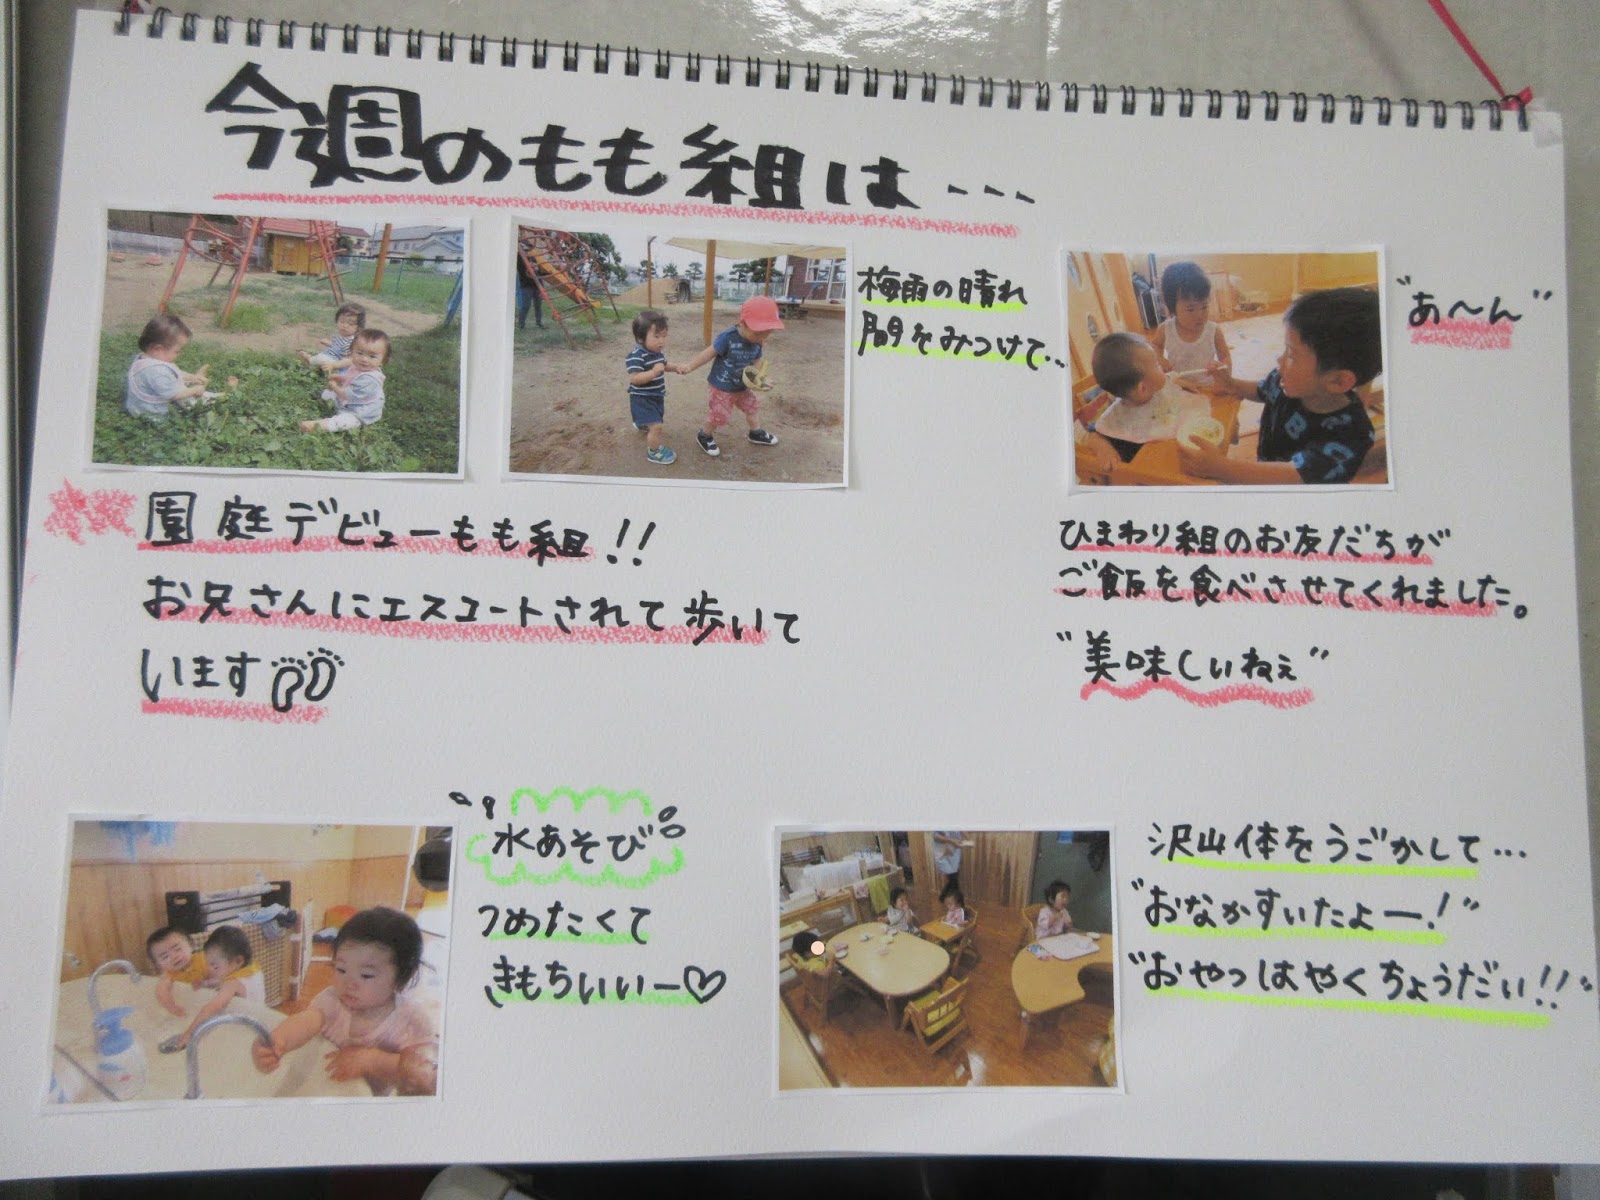 今週のもも組は・・・
梅雨の晴れ
間をみつけて…
園庭デビューもも組!!
お兄さんにエスコートされて歩いて
います
"あ〜ん"
ひまわり組のお友だちが
ご飯を食べさせてくれました。
"美味しいねぇ"
水あそび
つめたくて
きもちいいー♡
沢山体をうごかして…
"おなかすいたよー!"
"おやつはやくちょうだい!!"